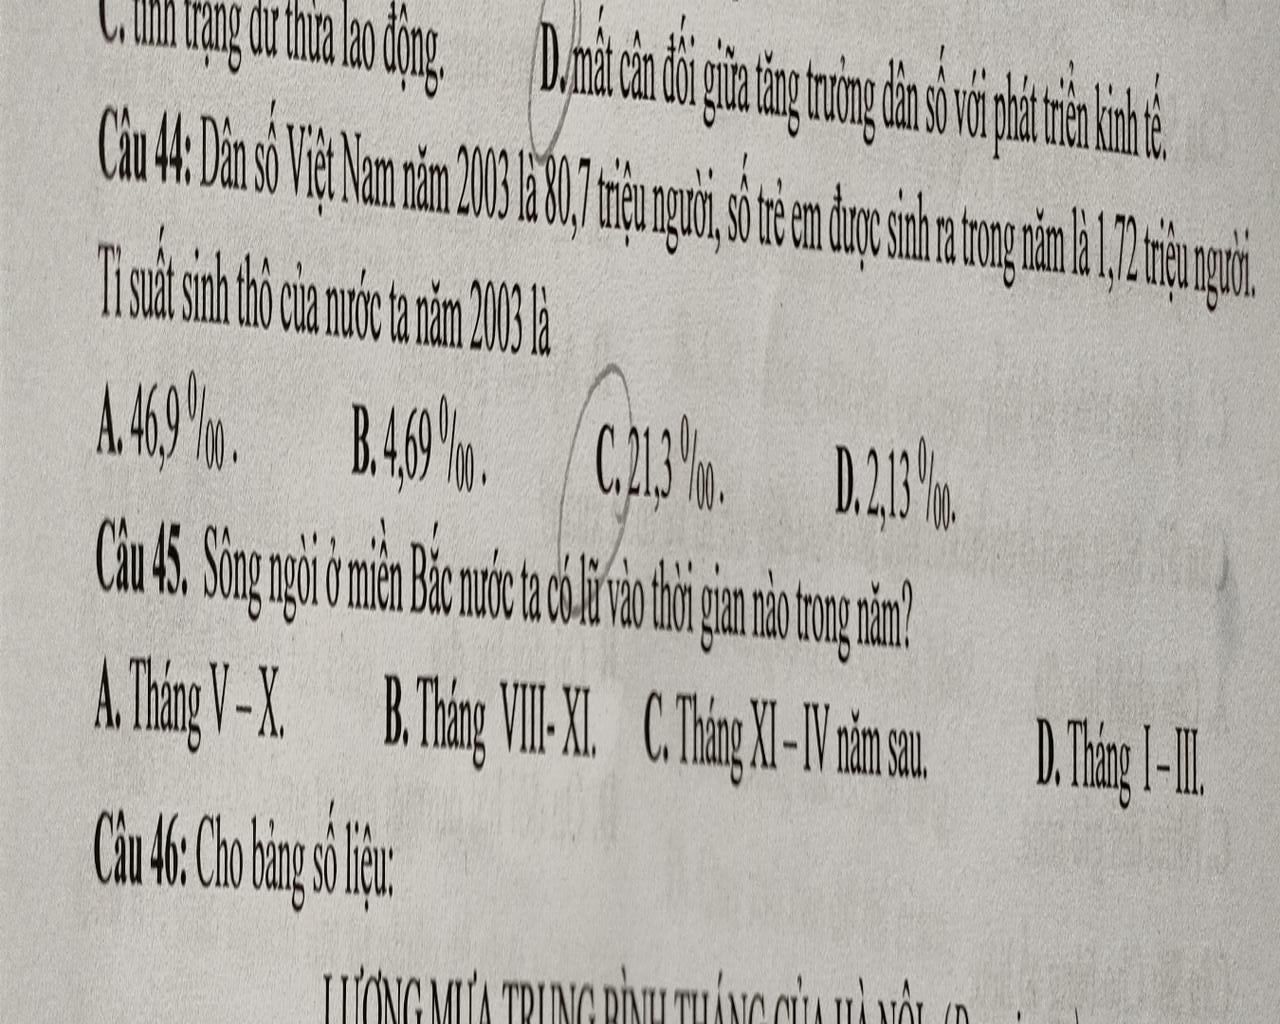 C. tình trạng dư thừa lao động. D. mất cân đối giữa tăng trưởng dân số với phát triển kinh tế.
Câu 44: Dân số Việt Nam năm 2003 là 80,7 triệu người, số trẻ em được sinh ra trong năm là 1,72 triệu người.
Tỉ suất sinh thô của nước ta năm 2003 là
A. 46,9 0/00 . B. 4,69 0/00 . C. 21,3 0/00 . D. 2,13 0/00.
Câu 45. Sông ngòi ở miền Bắc nước ta có lũ vào thời gian nào trong năm?
A. Tháng V – X. B. Tháng VIII- XI. C. Tháng XI – IV năm sau. D. Tháng I – III.
Câu 46: Cho bảng số liệu:
LƯỢNG MƯA TRUNG BÌNH THÁNG CỦA HÀ NỘI